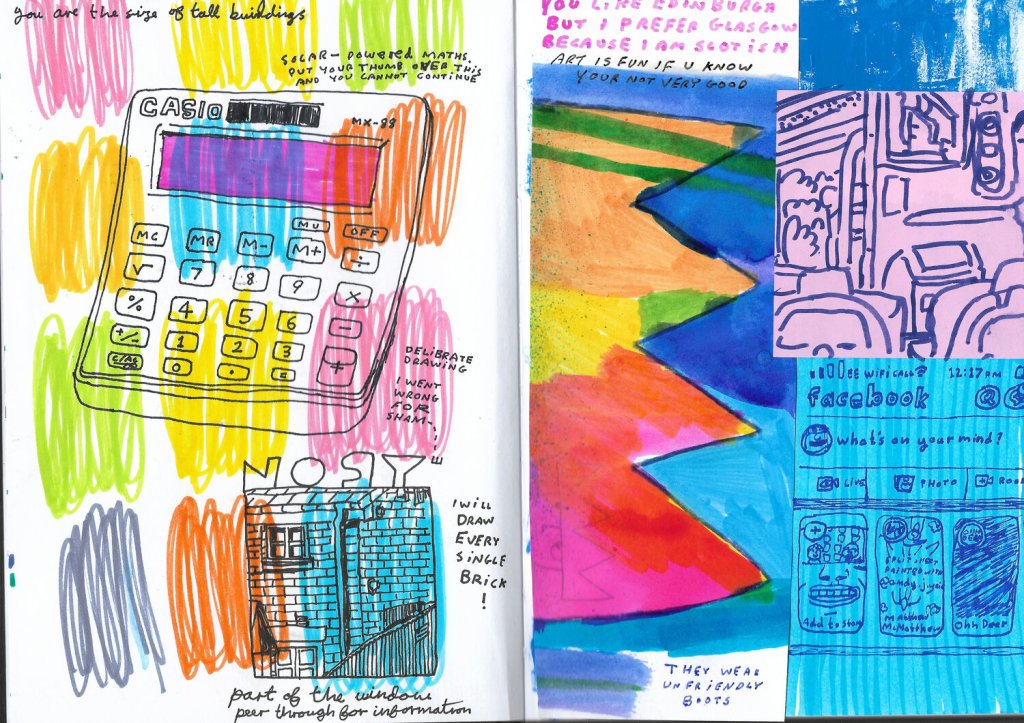 you are the size of tall buildings
SOLAR-POWERED MATHS.
PUT YOUR THUMB OVER THIS
AND YOU CANNOT CONTINUE
CASIO
MX-88
MU OFF
MC MR M- M+ ÷
√ 7 8 9 X
% 4 5 6 -
+/- 1 2 3 +
C/AC 0 . =
DELIBRATE
DRAWING
I WENT
WRONG
FOR
SHAM-
E
NOSY
I WILL
DRAW
EVERY
SINGLE
BRICK
!
part of the window
peer through for information
YOU LIKE EDINBURGH
BUT I PREFER GLASGOW
BECAUSE I AM SCOTISH
ART IS FUN IF U KNOW
YOUR NOT VERY GOOD
EE WIFI CALL? 12:17PM
facebook
what's on your mind?
LIVE PHOTO ROO
SPLIT SHEET
PAINTED WITH
Add to story
Matthew
McMatthew
Ohh Deer
THEY WEAR
UNFRIENDLY
BOOTS